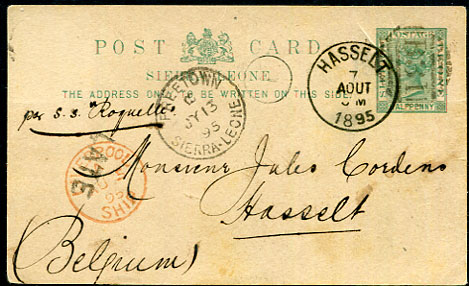 POST CARD
SIERRA LEONE
THE ADDRESS ONLY TO BE WRITTEN ON THIS SIDE
POSTAGE
HALFPENNY
FREETOWN
JY 13
95
SIERRA-LEONE
HASSELT
7
AOUT
1895
per S.S. "Roquelle"
LIVERPOOL
SHIP
Monsieur Jules Cordens
Hasselt
(Belgium)